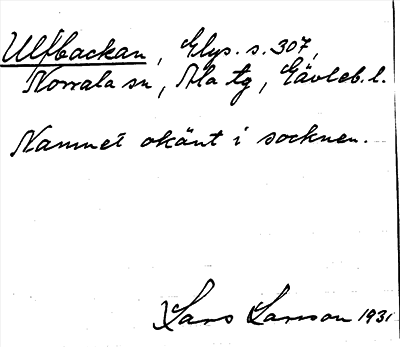 Ulfbackan, Elys. s. 307,
Norrala sn, Ala tg, Gävleb. l.
Namnet okänt i socknen.
Lars Larsson 1931